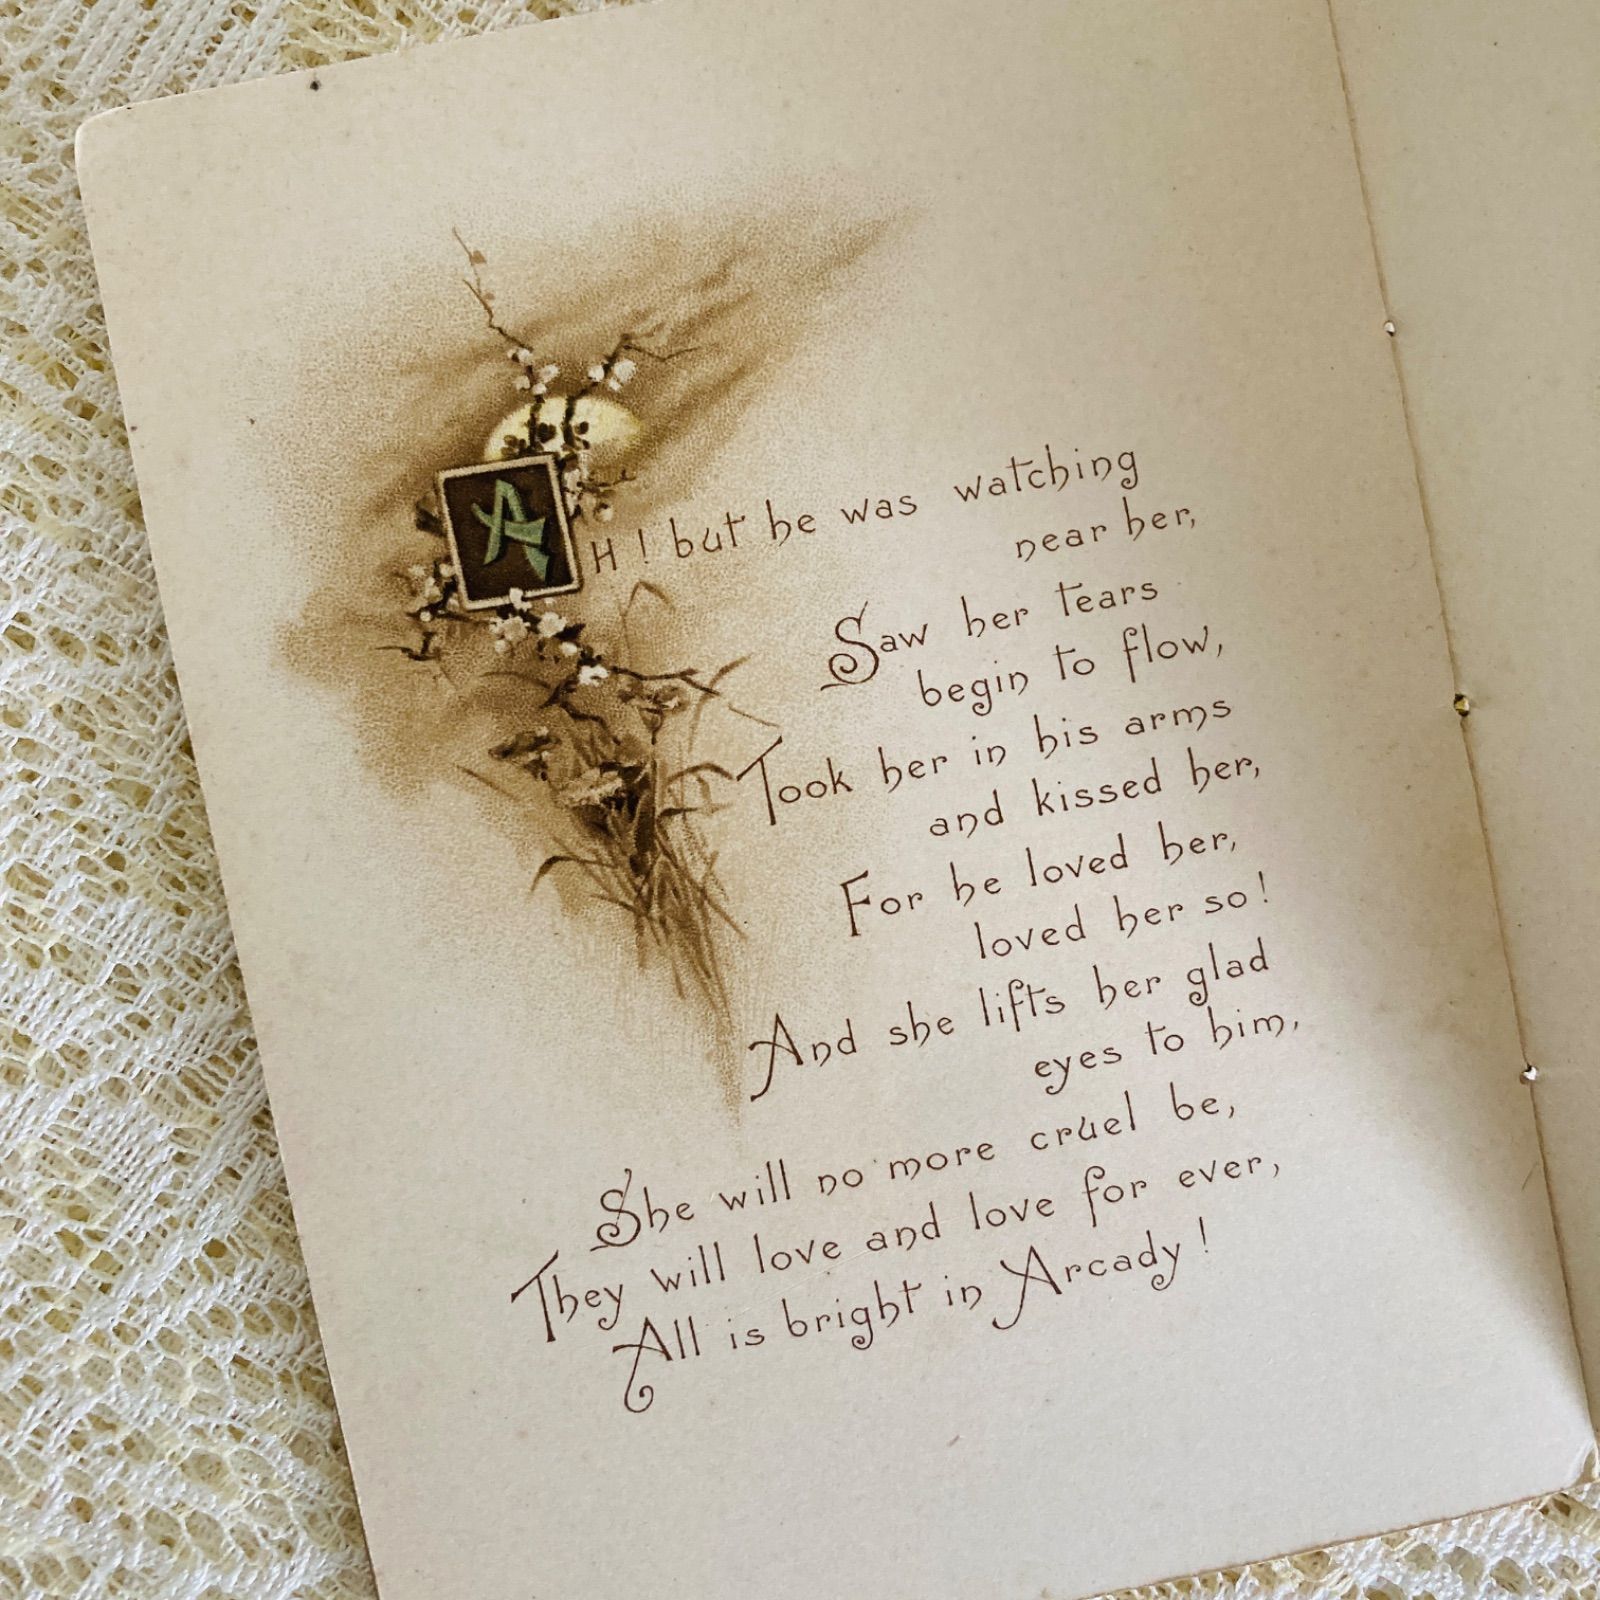 AH! but he was watching
near her,
Saw her tears
begin to flow,
Took her in his arms
and kissed her,
For he loved her,
loved her so!
And she lifts her glad
eyes to him,
She will no more cruel be,
They will love and love for ever,
All is bright in Arcady!